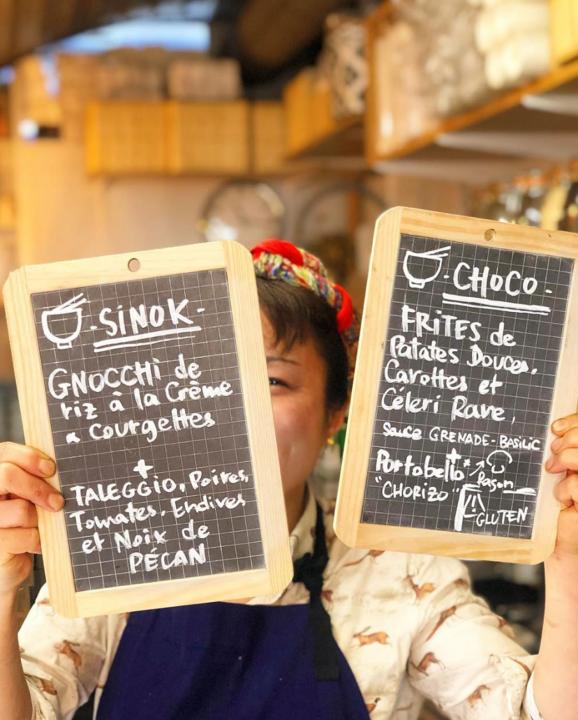 -SINOK-
GNOCCHI de
riz à la Crème
a courgettes
+
TALEGGIO, Poires,
Tomates, Endives
et Noix de
PÉCAN
-CHOCO-
FRITES de
Patates Douces,
Carottes et
Céleri Rave,
Sauce GRENADE-BASILIC
+
Portobello
"CHORIZO"
GLUTEN